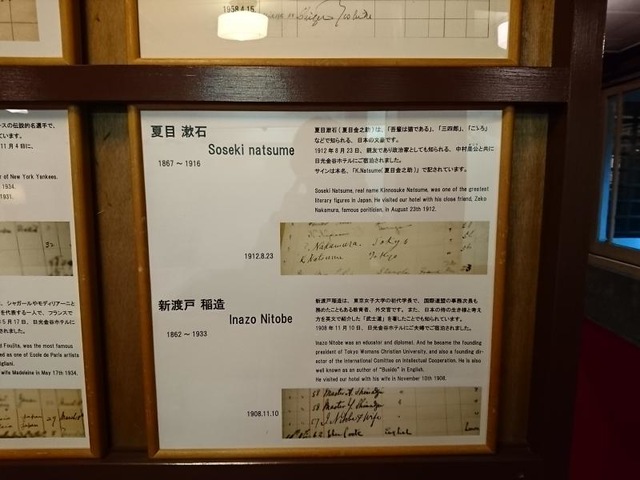 1958.4.15
夏目 漱石
Soseki natsume
1867 ～ 1916
夏目漱石(夏目金之助)は、「吾輩は猫である」、「三四郎」、「こゝろ」
などで知られる、日本の文豪です。
1912年8月23日、親友であり政治家としても知られる、中村是公と共に
日光金谷ホテルにご宿泊されました。
サインは本名、「K.Natsume(夏目金之助)」で記されています。
Soseki Natsume, real name Kinnosuke Natsume, was one of the greatest
literary figures in Japan. He visited our hotel with his close friend, Zeko
Nakamura, famous poritician, in August 23th 1912.
1912.8.23
Nakamura Tokyo
K Natsume Tokyo
新渡戸 稲造
Inazo Nitobe
1862 ～ 1933
新渡戸稲造は、東京女子大学の初代学長で、国際連盟の事務次長も
務めたこともある教育者、外交官です。また、日本の侍の生き様と考え
方を英文で紹介した「武士道」を著したことでも知られています。
1908年11月10日、日光金谷ホテルにご夫婦でご宿泊されました。
Inazo Nitobe was an educator and diplomat. And he became the founding
president of Tokyo Womens Christian University, and also a founding dir-
ector of the International Comittee on Intellectual Cooperation. He is also
well known as an author of "Busido" in English.
He visited our hotel with his wife in November 10th 1908.
1908.11.10
I Nitobe & wife
John Cook English
ースの伝説的名選手で、
ています。
11月4日に、
er of New York Yankees.
1934.
1931.
、シャガールやモディリアーニと
を代表する一人で、フランス
5月17日、日光金谷ホテルに
されました。
Foujita, was the most famous
ed as one of Ecole de Paris artists
igliani.
wife Madeleine in May 17th 1934.